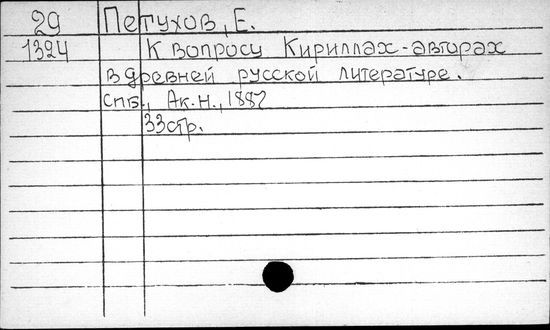 29 Петухов, Е.
1324 К вопросу Кириллах-авторах
в древней русской литературе.
Спб., Ак.Н., 1887
33стр.